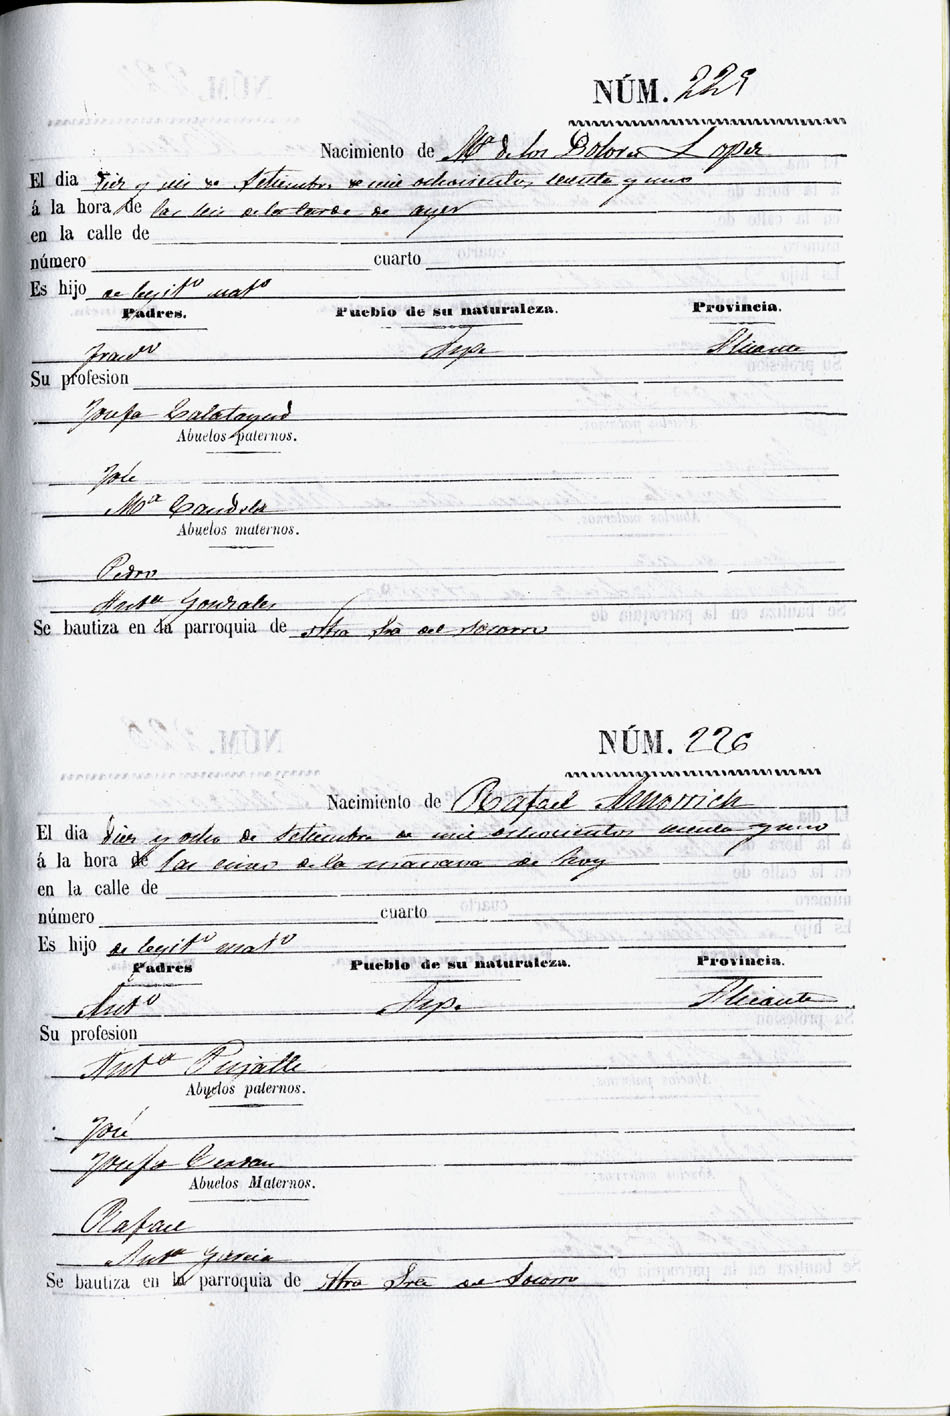 NÚM. 225
Nacimiento de Mª de los Dolores Lopez
El dia diez y seis de Setiembre de mil ochocientos setenta y uno
á la hora de las seis de la tarde de ayer
en la calle de
número cuarto
Es hijo de legitº matº
Padres. Pueblo de su naturaleza. Provincia.
Franco Aspe Alicante
Su profesion
Josefa Calatayud
Abuelos paternos.
José
Mª Candela
Abuelos maternos.
Pedro
Antª Gonzales
Se bautiza en la parroquia de Ntra Sra del Socorro
NÚM. 226
Nacimiento de Rafael Almorrich
El dia diez y ocho de Setiembre de mil ochocientos setenta y uno
á la hora de las cinco de la mañana de hoy
en la calle de
número cuarto
Es hijo de legitº matº
Padres Pueblo de su naturaleza. Provincia.
Antº Aspe Alicante
Su profesion
Antª Pujalte
Abuelos paternos.
José
Josefa Cerdan
Abuelos Maternos.
Rafael
Antª Garcia
Se bautiza en la parroquia de Ntra Sra del Socorro